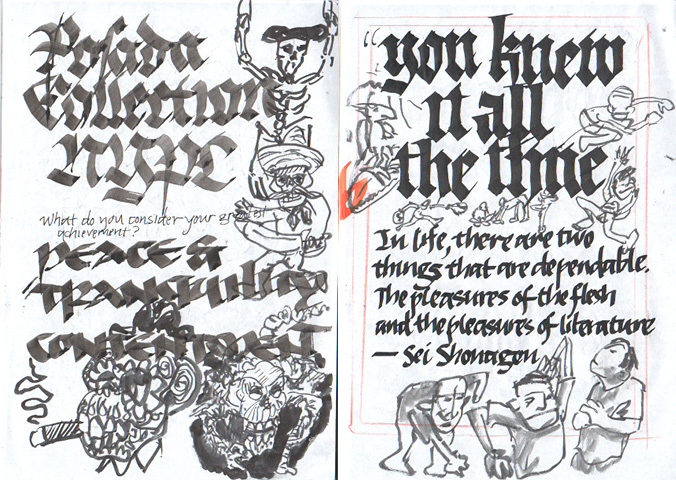 Posada
Collection
NYPL
What do you consider your greatest
achievement?
peace &
tranquility
contentment
"you knew
it all
the time
In life, there are two
things that are dependable.
The pleasures of the flesh
and the pleasures of literature
— Sei Shonagon